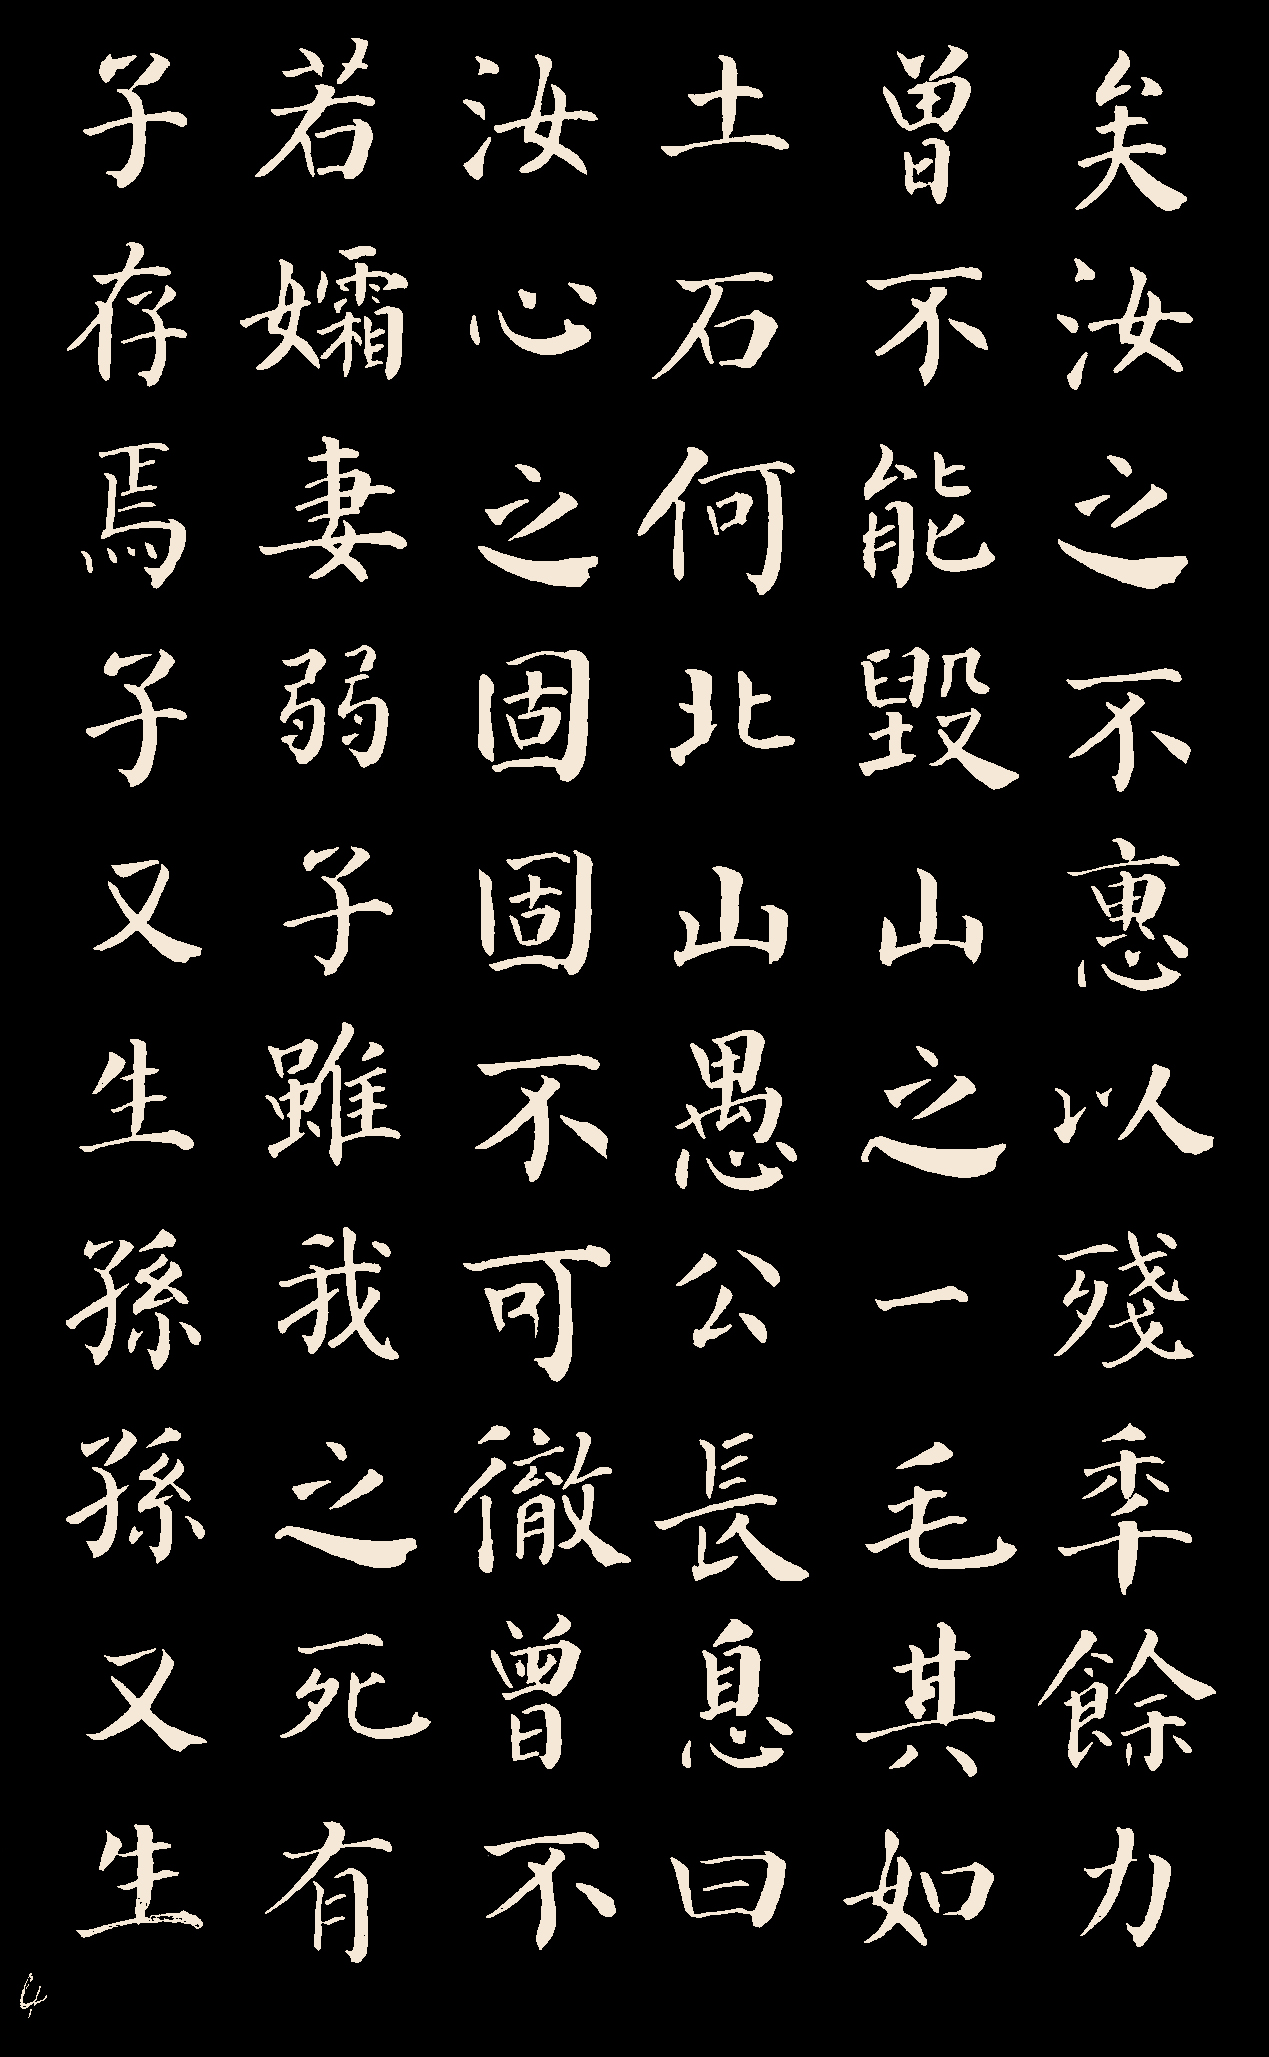 矣汝之不惠以殘秊餘力
曾不能毀山之一毛其如
土石何北山愚公長息曰
汝心之固固不可徹曾不
若孀妻弱子雖我之死有
子存焉子又生孫孫又生
4